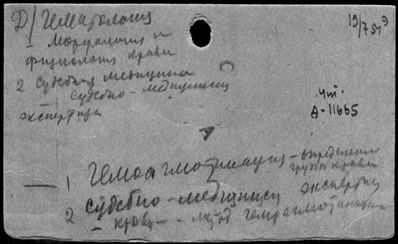 Д/ Гематология
19/7 519
1 Морфология и
физиология крови
2 Судебная медицина
Судебно-медицинск
экспертиза
Чт.
А-11665
А
1 Гемоагглютинация - определение
группы крови
2 Судебно-медицинск экспертиза
- кровь - метод гемагглютинации